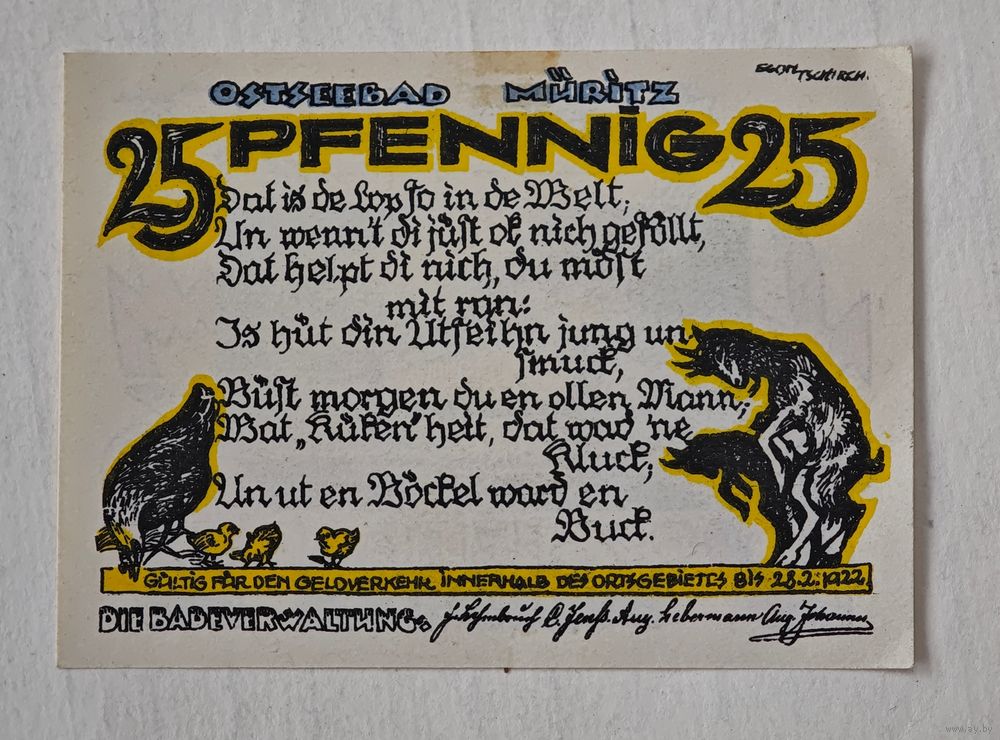 EGON TSCHIRCH.
OSTSEEBAD MÜRITZ
25 PFENNIG 25
Dat is de Loop so in de Welt,
Un wenn't di jüst ok nich geföllt,
Dat helpt di nich, du möst
mit ran:
Is hüt din Utseihn jung un
smuck,
Büst morgen du en ollen Mann;
Wat „Küken" heit, dat ward 'ne
Kluck,
Un ut en Böckel ward en
Buck.
GÜLTIG FÜR DEN GELDVERKEHR INNERHALB DES ORTSGEBIETES BIS 28.2.1922.
DIE BADEVERWALTUNG: Aug. Aug.
www.ay.by